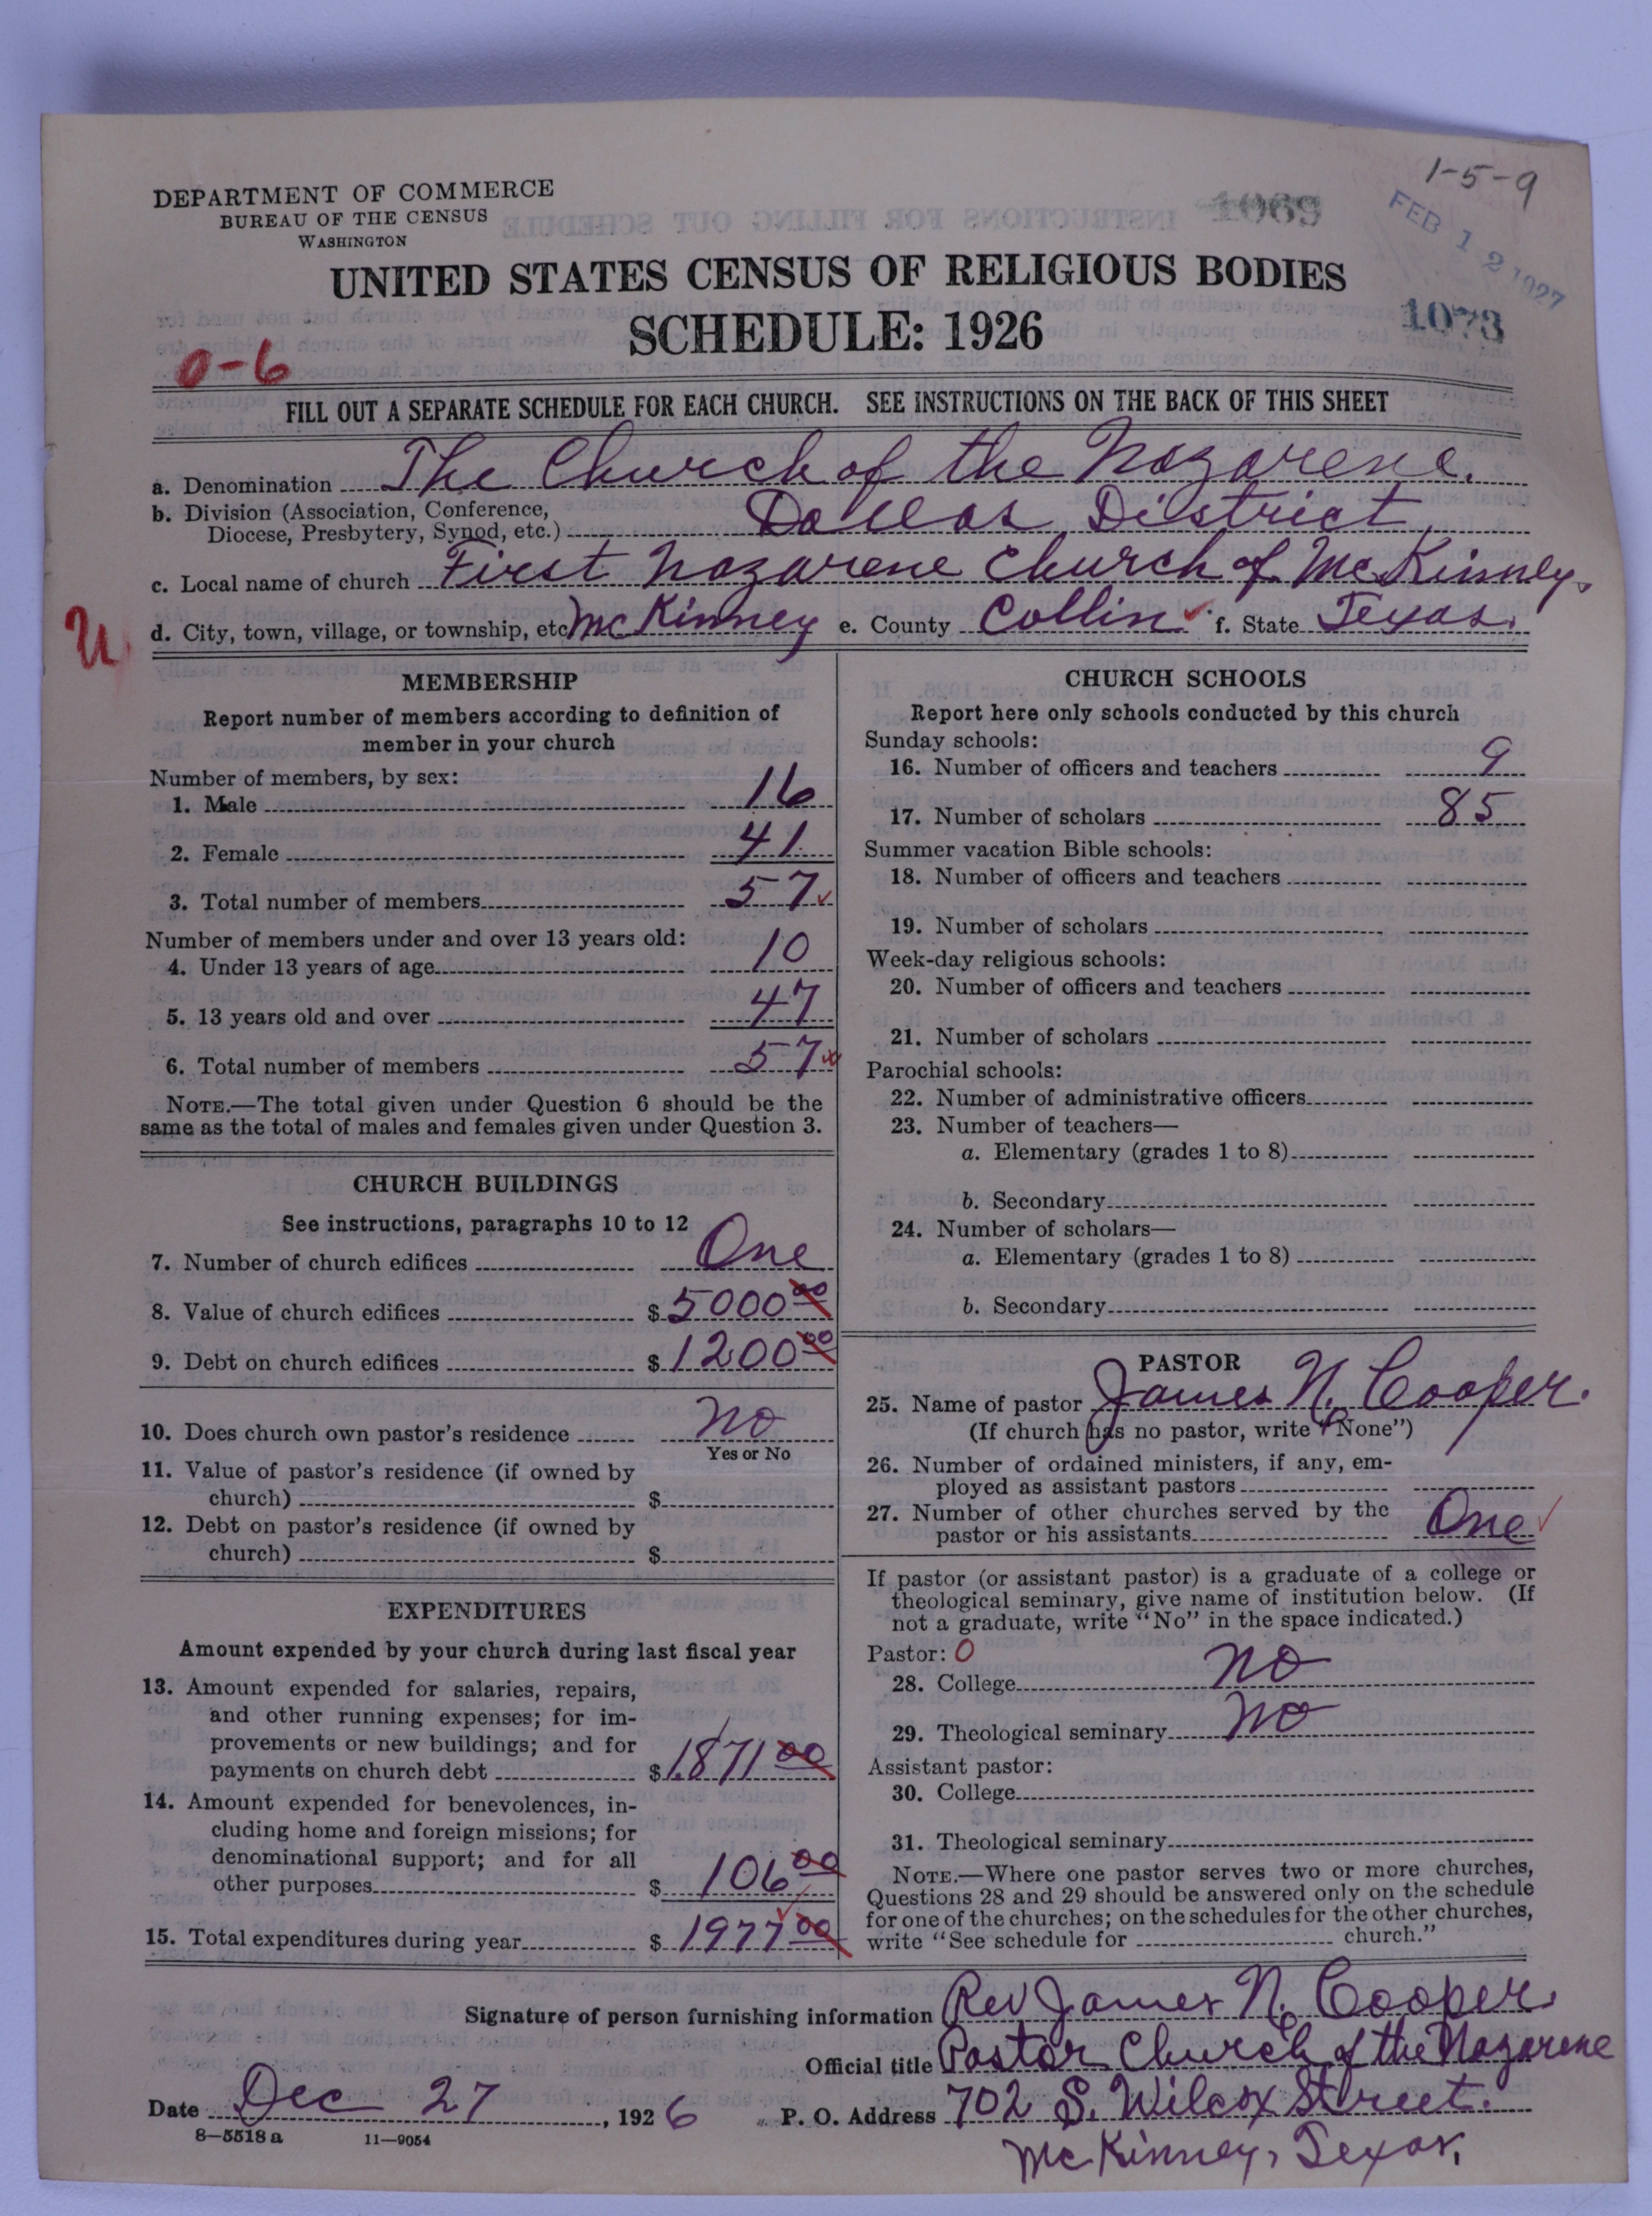 1-5-9
DEPARTMENT OF COMMERCE
BUREAU OF THE CENSUS
WASHINGTON
1069
FEB 12 1927
UNITED STATES CENSUS OF RELIGIOUS BODIES
1073
SCHEDULE: 1926
0-6
FILL OUT A SEPARATE SCHEDULE FOR EACH CHURCH. SEE INSTRUCTIONS ON THE BACK OF THIS SHEET
a. Denomination The Church of the Nazarene.
b. Division (Association, Conference,
Diocese, Presbytery, Synod, etc.) Dallas District
c. Local name of church First Nazarene Church of McKinney.
U d. City, town, village, or township, etc McKinney e. County Collin ✓ f. State Texas.
MEMBERSHIP
Report number of members according to definition of
member in your church
Number of members, by sex:
1. Male 16
2. Female 41
3. Total number of members 57
Number of members under and over 13 years old:
4. Under 13 years of age 10
5. 13 years old and over 47
6. Total number of members 57
NOTE.—The total given under Question 6 should be the
same as the total of males and females given under Question 3.
CHURCH BUILDINGS
See instructions, paragraphs 10 to 12
7. Number of church edifices One
8. Value of church edifices $ 5000 00
9. Debt on church edifices $ 1200 00
10. Does church own pastor's residence No
Yes or No
11. Value of pastor's residence (if owned by
church) $
12. Debt on pastor's residence (if owned by
church) $
EXPENDITURES
Amount expended by your church during last fiscal year
13. Amount expended for salaries, repairs,
and other running expenses; for im-
provements or new buildings; and for
payments on church debt $ 1871 00
14. Amount expended for benevolences, in-
cluding home and foreign missions; for
denominational support; and for all
other purposes $ 106 00
15. Total expenditures during year $ 1977 00
CHURCH SCHOOLS
Report here only schools conducted by this church
Sunday schools:
16. Number of officers and teachers 9
17. Number of scholars 85
Summer vacation Bible schools:
18. Number of officers and teachers
19. Number of scholars
Week-day religious schools:
20. Number of officers and teachers
21. Number of scholars
Parochial schools:
22. Number of administrative officers
23. Number of teachers—
a. Elementary (grades 1 to 8)
b. Secondary
24. Number of scholars—
a. Elementary (grades 1 to 8)
b. Secondary
PASTOR
25. Name of pastor James N. Cooper.
(If church has no pastor, write "None")
26. Number of ordained ministers, if any, em-
ployed as assistant pastors
27. Number of other churches served by the
pastor or his assistants One
If pastor (or assistant pastor) is a graduate of a college or
theological seminary, give name of institution below. (If
not a graduate, write "No" in the space indicated.)
Pastor: 0
28. College No
29. Theological seminary No
Assistant pastor:
30. College
31. Theological seminary
NOTE.—Where one pastor serves two or more churches,
Questions 28 and 29 should be answered only on the schedule
for one of the churches; on the schedules for the other churches,
write "See schedule for church."
Signature of person furnishing information Rev James N. Cooper.
Official title Pastor Church of the Nazarene
Date Dec 27, 1926 P. O. Address 702 S. Wilcox Street.
8—5518 a 11—9054
McKinney, Texas.